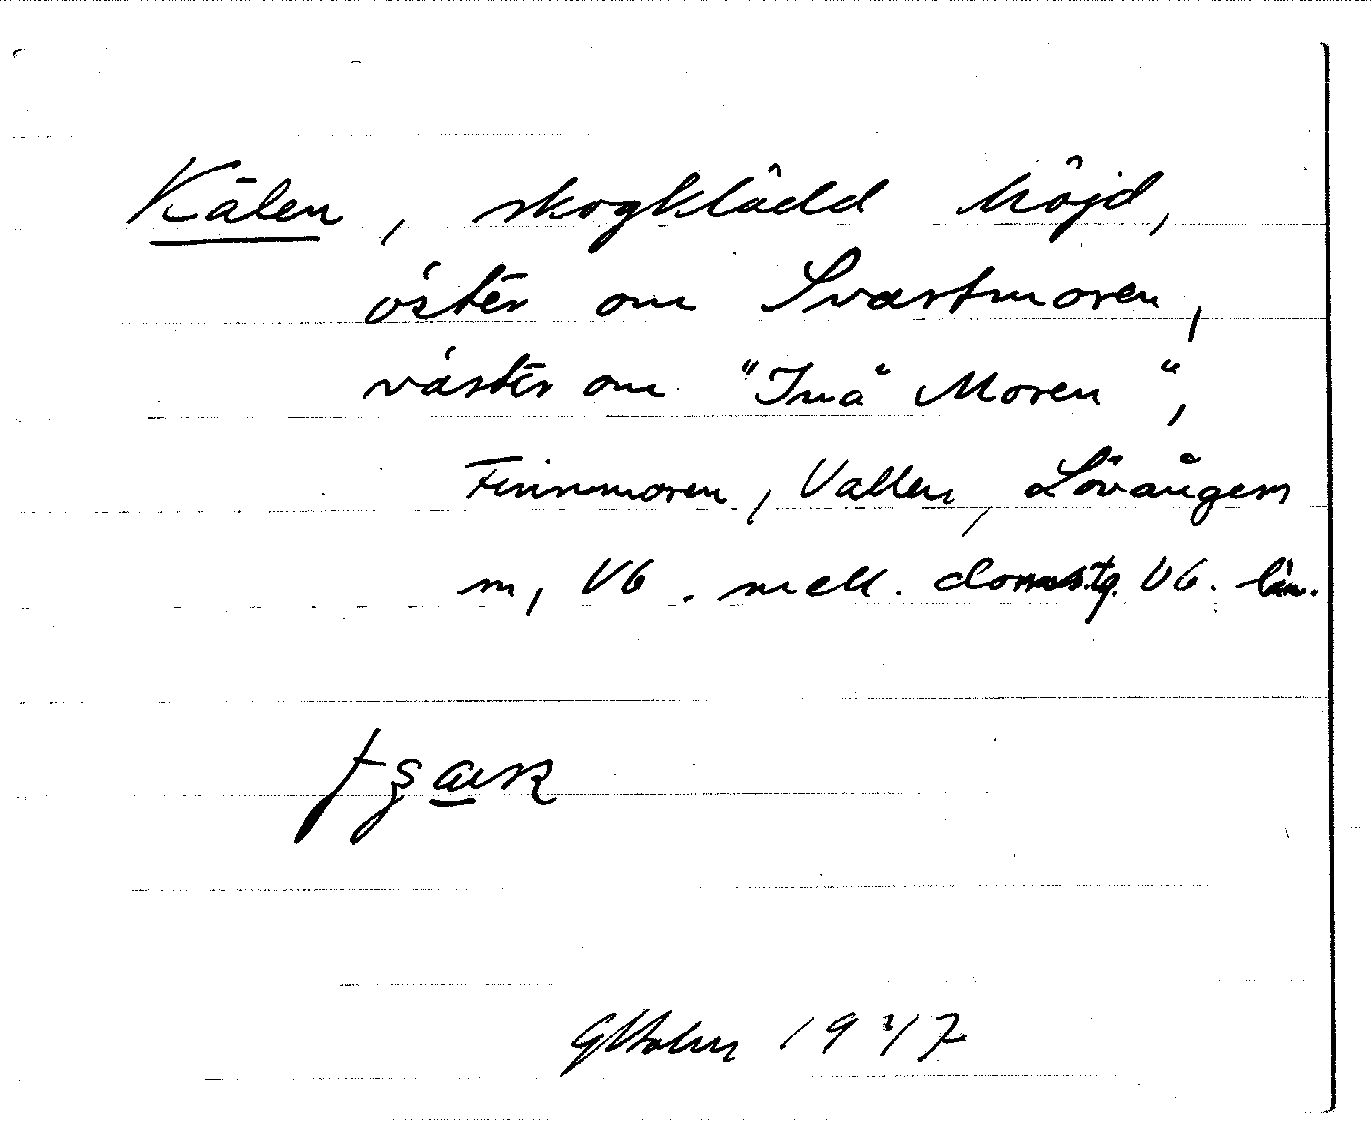 Kälen, skogklädd höjd,
öster om Svartmoren,
väster om "Små Moren",
Finnmoren, Vallen, Lövångers
m, Vb. mell. domstg. Vb. län.
GHolm 1947